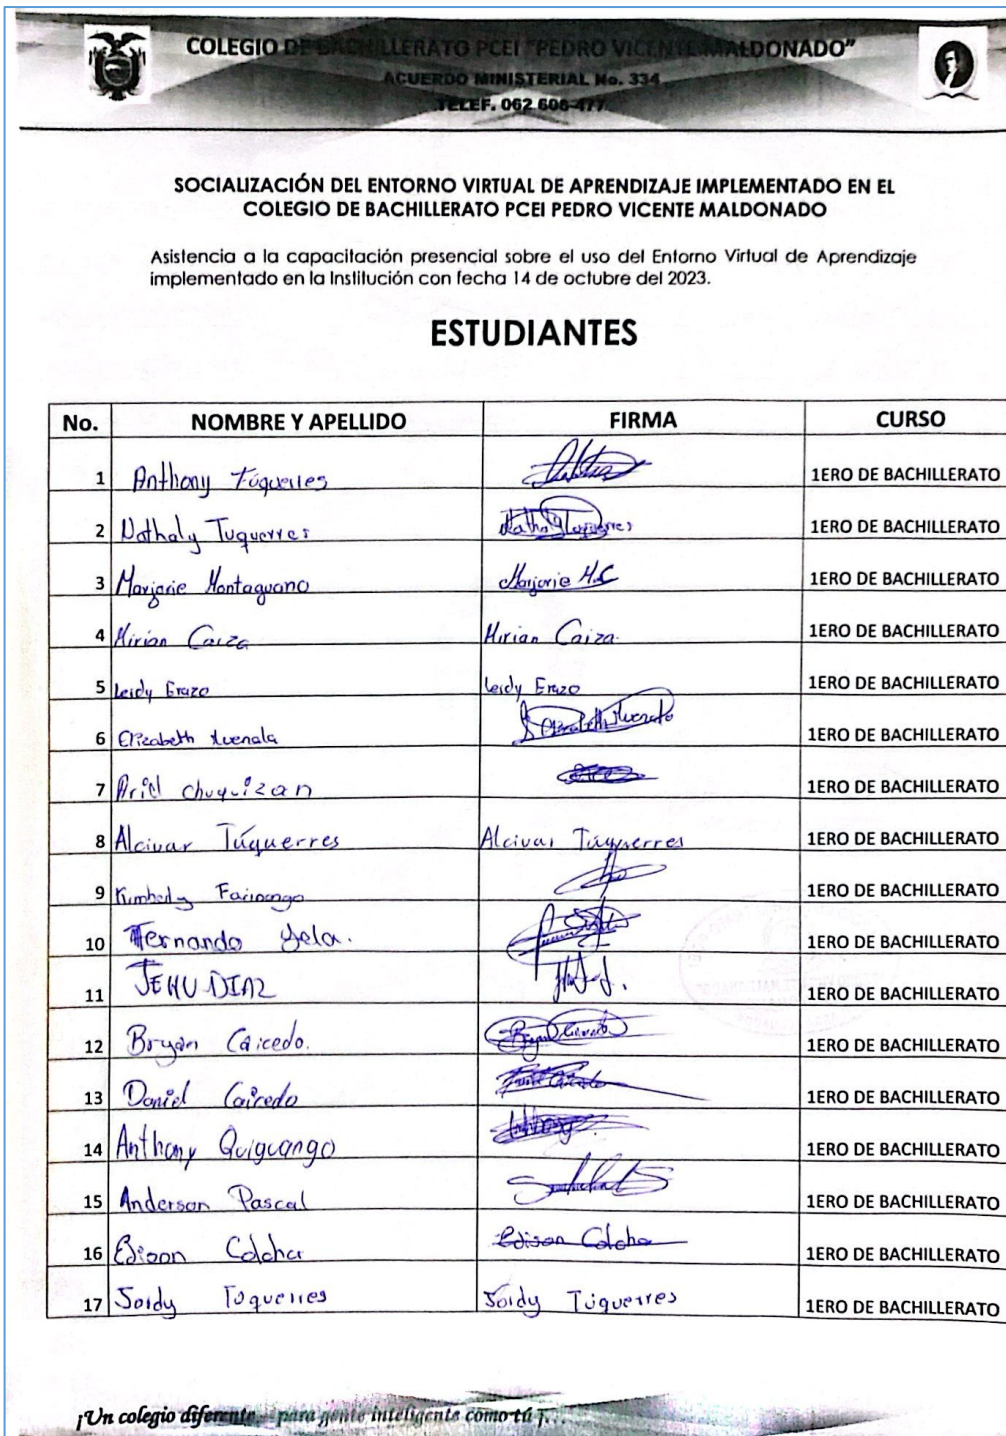 COLEGIO DE BACHILLERATO PCEI "PEDRO VICENTE MALDONADO"
ACUERDO MINISTERIAL No. 334
TELEF. 062 606-477
SOCIALIZACIÓN DEL ENTORNO VIRTUAL DE APRENDIZAJE IMPLEMENTADO EN EL
COLEGIO DE BACHILLERATO PCEI PEDRO VICENTE MALDONADO
Asistencia a la capacitación presencial sobre el uso del Entorno Virtual de Aprendizaje
implementado en la Institución con fecha 14 de octubre del 2023.
ESTUDIANTES
No. NOMBRE Y APELLIDO FIRMA CURSO
1 Anthony Túquerres 1ERO DE BACHILLERATO
2 Nathaly Tuquerres 1ERO DE BACHILLERATO
3 Marjorie Montaguano Marjorie M.C 1ERO DE BACHILLERATO
4 Mirian Caiza Mirian Caiza 1ERO DE BACHILLERATO
5 Leidy Erazo Leidy Erazo 1ERO DE BACHILLERATO
6 Elizabeth 1ERO DE BACHILLERATO
7 Ariel chuquizan 1ERO DE BACHILLERATO
8 Alcivar Túquerres Alcivar Túquerres 1ERO DE BACHILLERATO
9 Farinango 1ERO DE BACHILLERATO
10 Hernando Yela. 1ERO DE BACHILLERATO
11 JEHU DIAZ 1ERO DE BACHILLERATO
12 Bryan Caicedo. 1ERO DE BACHILLERATO
13 Daniel Caicedo 1ERO DE BACHILLERATO
14 Anthony Quiguango 1ERO DE BACHILLERATO
15 Anderson Pascal 1ERO DE BACHILLERATO
16 Edison Colcha Edison Colcha 1ERO DE BACHILLERATO
17 Jordy Tuquerres Jordy Túquerres 1ERO DE BACHILLERATO
¡Un colegio diferente... para gente inteligente como tú !...